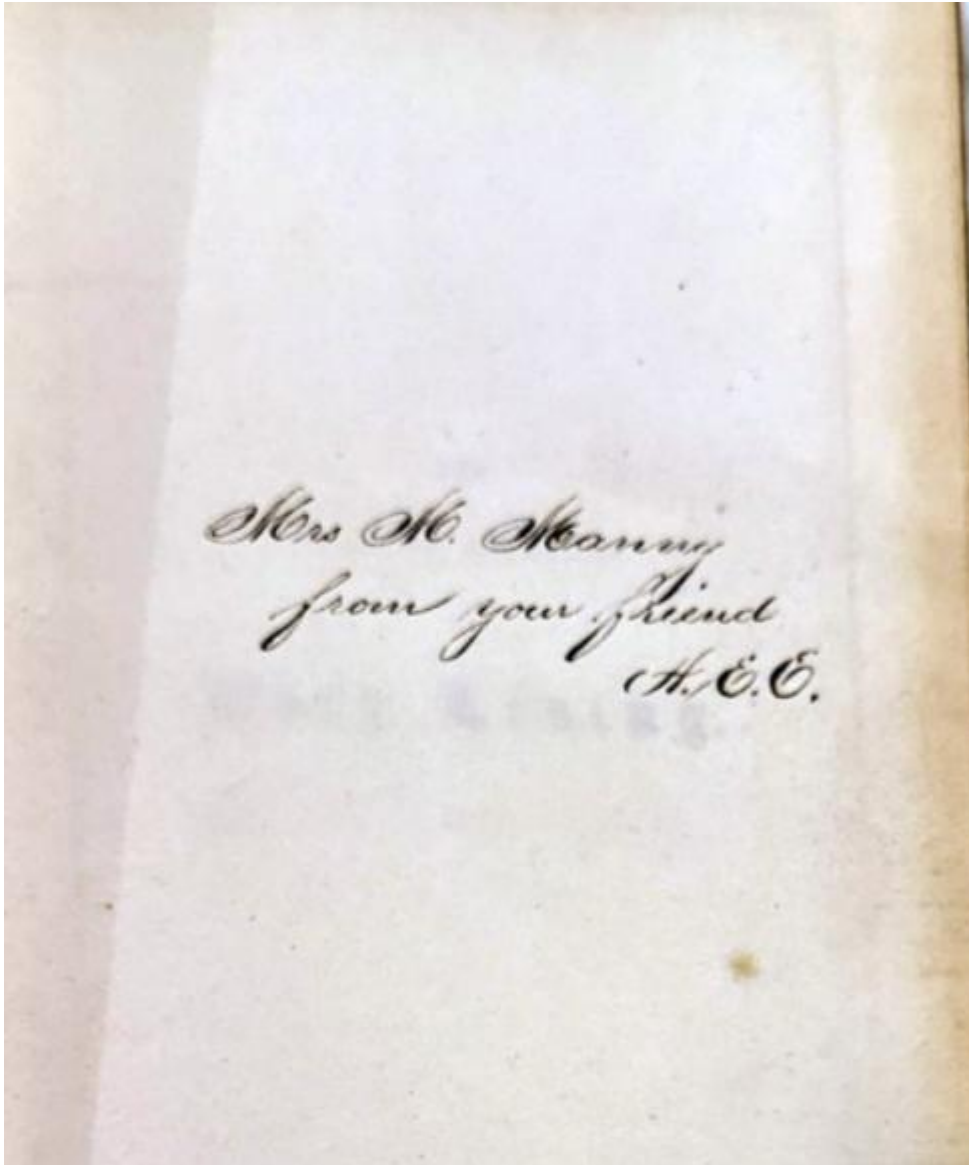 Mrs M. Manny
from your friend
A. E. E.